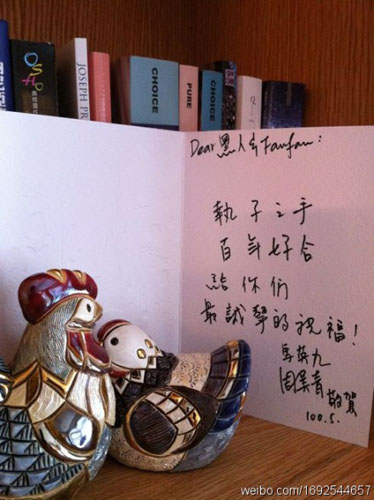 OSHO
JOSEPH
CHOICE
PURE
CHOICE
Dear 黑人 & Fanfan:
執子之手
百年好合
給你們
最誠摯的祝福!
馬英九
周美青 敬賀
100.5.
weibo.com/1692544657